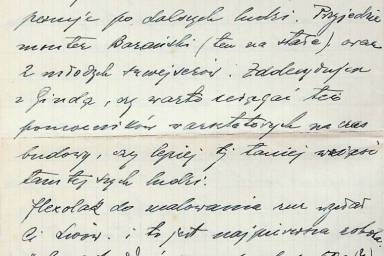 po dalszych ludzi. Przyjedzie
monter Barański (ten na stałe) oraz
2 młodych szwejserów. Zadecydujcie
z Gindą, czy warto ściągać też
pomocników warsztatowych na czas
budowy, czy lepiej tj taniej wziąść
tamtejszych ludzi.
Flexolak do malowania rur wysłał
Ci Lwów. i to jest najpierwsza robota.